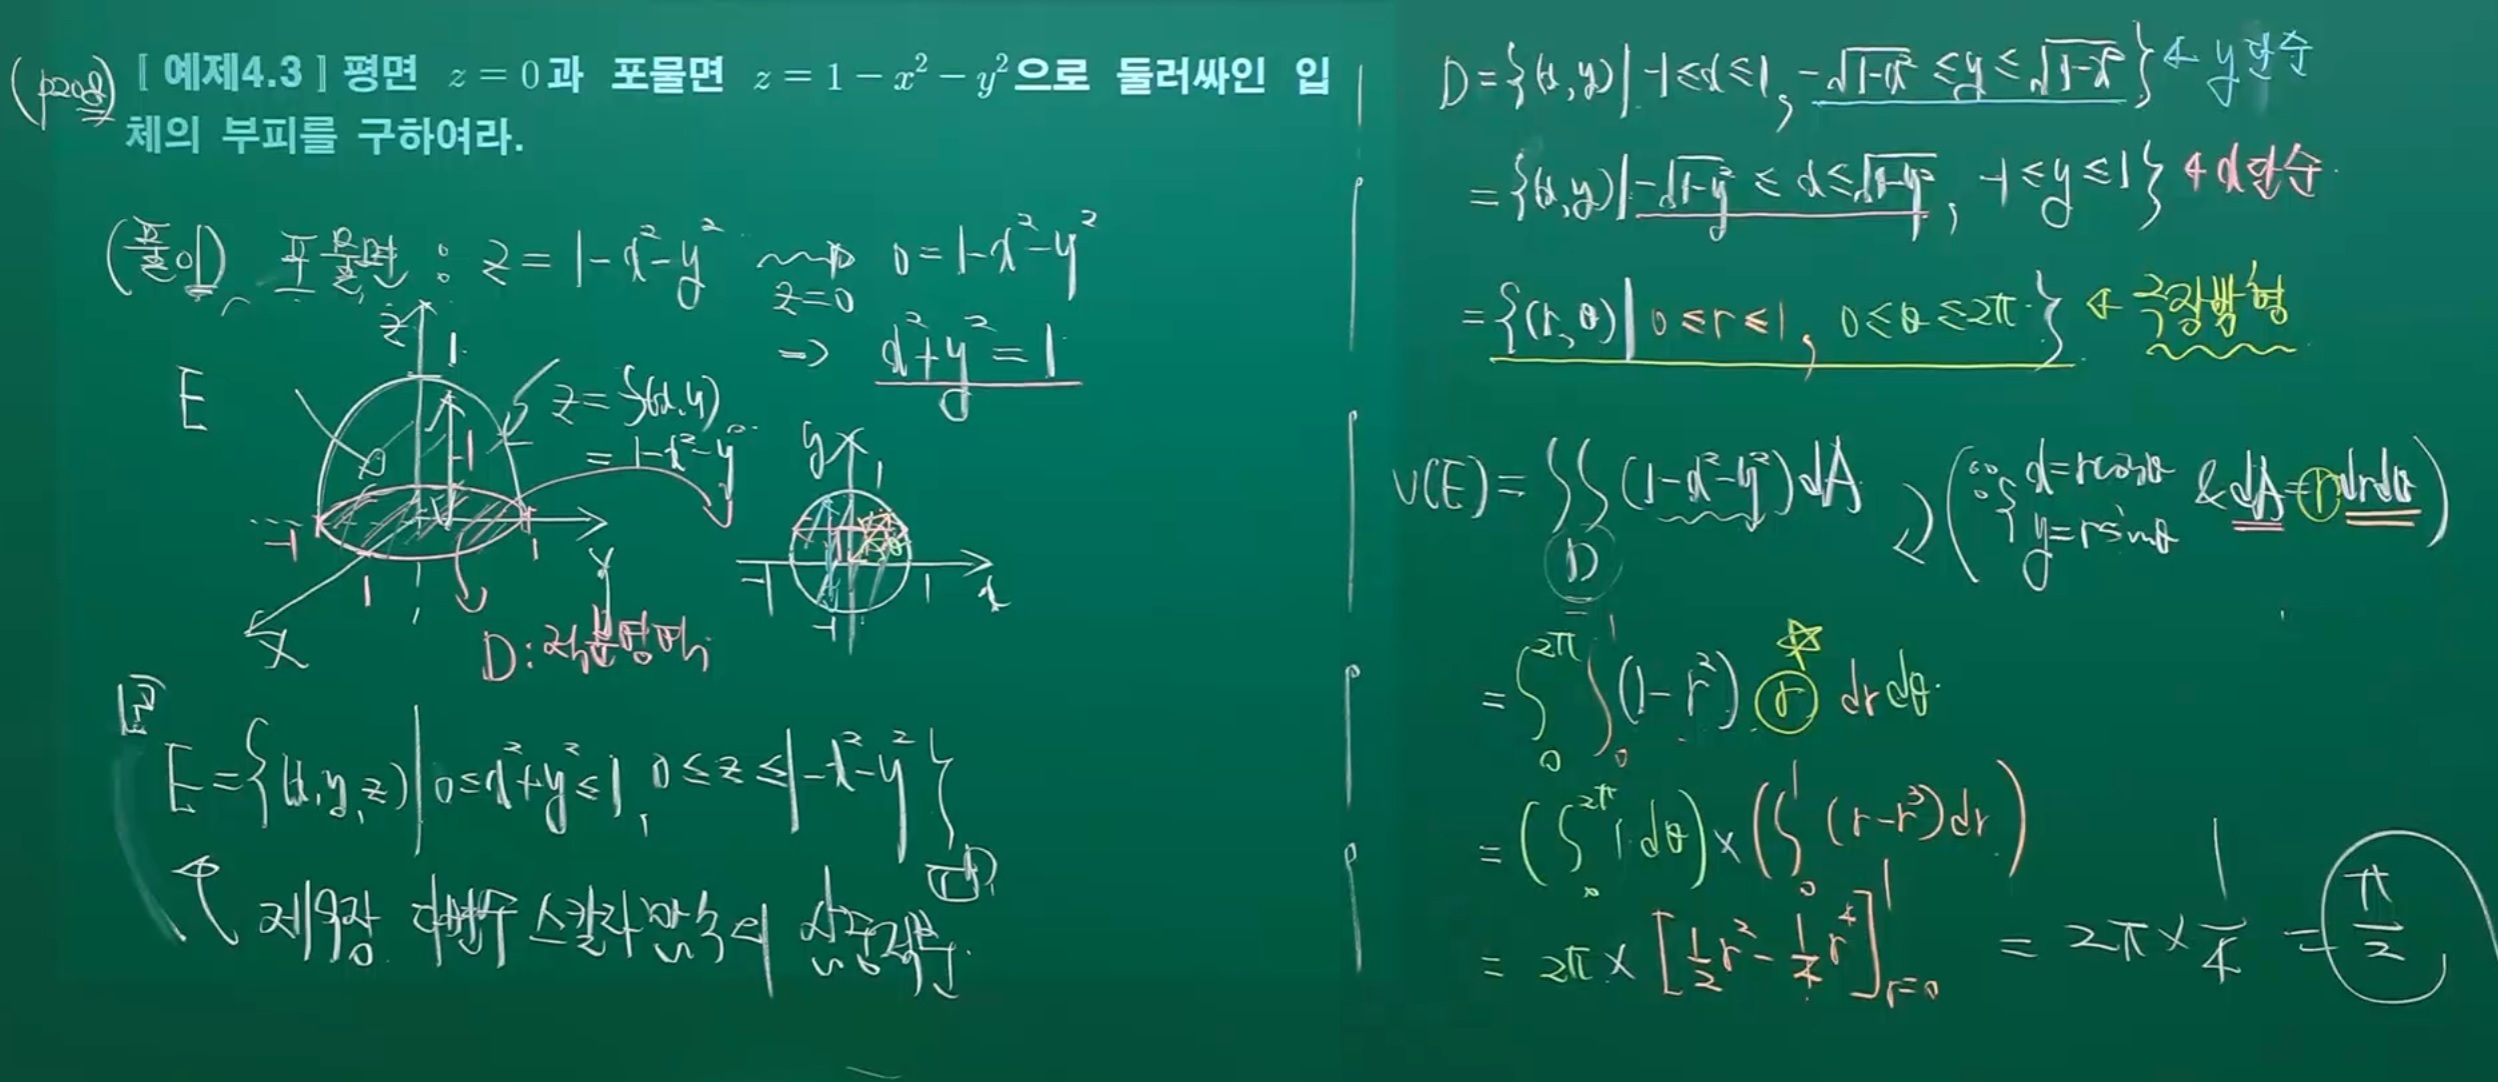 (p208)
[예제4.3] 평면 z = 0과 포물면 z = 1 − x² − y²으로 둘러싸인 입
체의 부피를 구하여라.
(풀이) 포물면 : z = 1-x²-y² ⇝ 0 = 1-x²-y²
z=0
⇒ x²+y² = 1
z
1
E
z = f(x,y)
= 1-x²-y²
-1
1
1
y
x
D: 적분영역
y
1
-1
1
x
-1
E = {(x,y,z) | 0≤x²+y²≤1, 0≤z≤1-x²-y²}
제우장 다변수 스칼라함수의 삼중적분
D = {(x,y) | -1≤x≤1, -√(1-x²) ≤ y ≤ √(1-x²)} ← y단순
= {(x,y) | -√(1-y²) ≤ x ≤ √(1-y²), -1≤y≤1} ← x단순
= {(r,θ) | 0≤r≤1, 0≤θ≤2π} ← 극장방형
V(E) = ∬_D (1-x²-y²) dA (∵ { x=rcosθ y=rsinθ & dA = r drdθ)
= ∫₀^2π ∫₀¹ (1-r²) r dr dθ
= (∫₀^2π 1 dθ) × (∫₀¹ (r-r³) dr)
= 2π × [½r² - ¼r⁴]¹_r=0 = 2π × ¼ = π/2